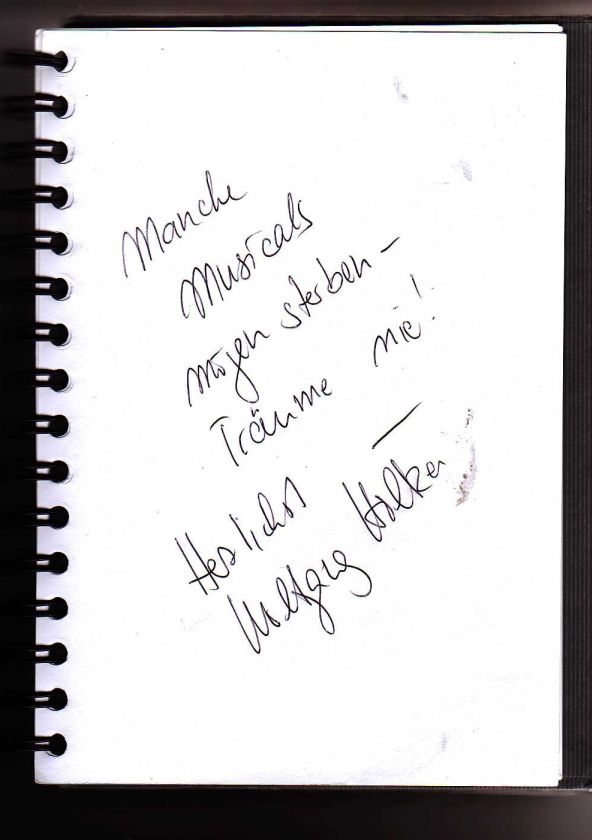 Manche
Musicals
mögen sterben –
Träume nie! –
Herzlichst
Wolfgang Hölker